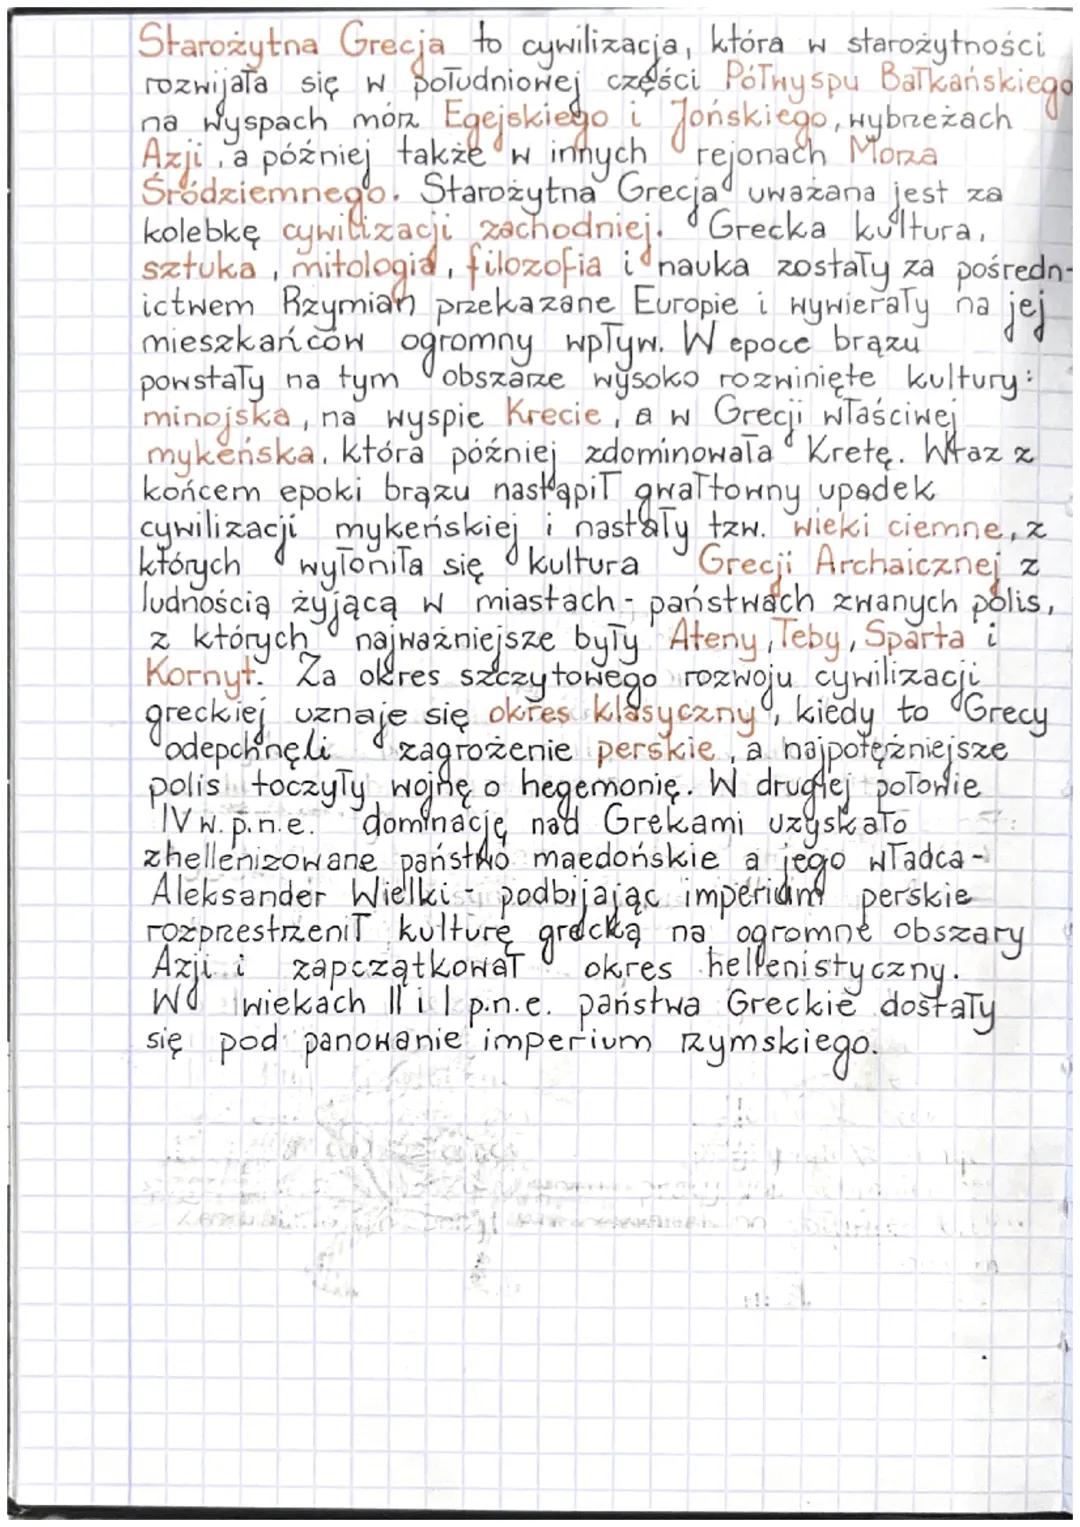 Starożytna Grecja to cywilizacja, która w starożytności
rozwijała się w południowej części Półwyspu Bałkańskiego
na wyspach mórz Egejskiego i Jońskiego, wybrzeżach
Azji, a później także w innych rejonach Morza
Śródziemnego. Starożytna Grecja uważana jest za
kolebkę cywilizacji zachodniej. Grecka kultura,
sztuka, mitologia, filozofia i nauka zostały za pośredn-
ictwem Rzymian przekazane Europie i wywierały na jej
mieszkańców ogromny wpływ. W epoce brązu
powstały na tym obszarze wysoko rozwinięte kultury:
minojska, na wyspie Krecie, a w Grecji właściwej
mykeńska, która później zdominowała Kretę. Wraz z
końcem epoki brązu nastąpił gwałtowny upadek
cywilizacji mykeńskiej i nastały tzw. wieki ciemne, z
których wyłoniła się kultura Grecji Archaicznej z
ludnością żyjącą w miastach - państwach zwanych polis,
z których najważniejsze były Ateny, Teby, Sparta i
Kornyt. Za okres szczytowego rozwoju cywilizacji
greckiej uznaje się okres klasyczny, kiedy to Grecy
odepchnęli zagrożenie perskie, a najpotężniejsze
polis toczyły wojnę o hegemonię. W drugiej połowie
IV w. p.n.e. dominację nad Grekami uzyskało
zhellenizowane państwo maedońskie a jego władca -
Aleksander Wielki - podbijając imperium perskie
rozprzestrzenił kulturę grecką na ogromne obszary
Azji i zapczątkował okres hellenistyczny.
W wiekach II i I p.n.e. państwa Greckie dostały
się pod panowanie imperium rzymskiego.